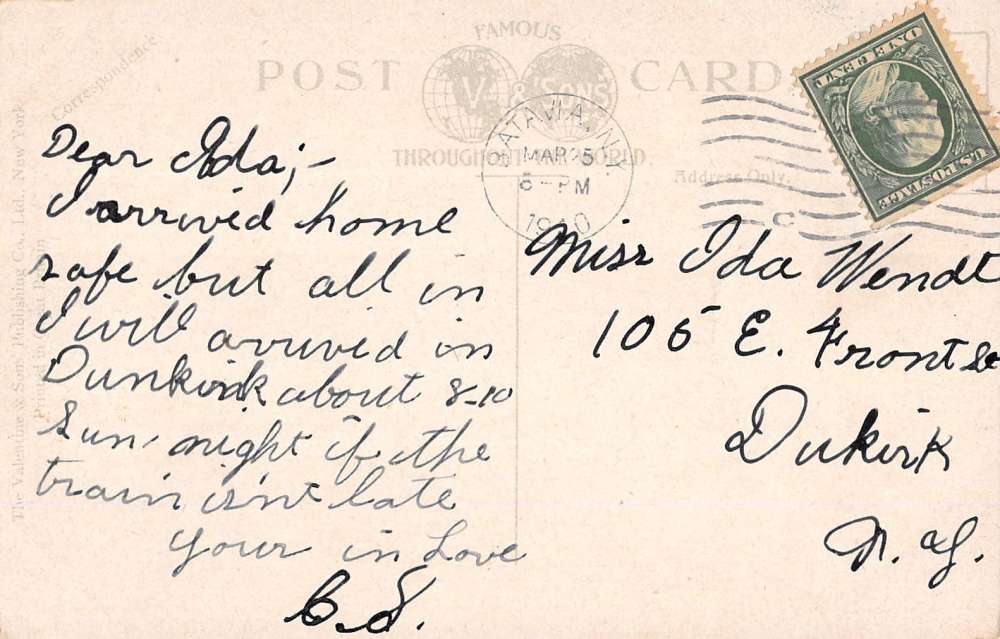 FAMOUS
POST CARD
V. & SONS
THROUGHOUT THE WORLD.
Correspondence.
Address Only.
The Valentine & Sons Publishing Co., Ltd. New York.
Printed in
BATAVIA, N.Y.
MAR 25
8 - PM
1910
ONE CENT
U.S. POSTAGE
Dear Ida;-
I arrived home
safe but all in
I will arrived in
Dunkirk about 8-10
Sun. night if the
train isn't late
Your in Love
Miss Ida Wendt
105 E. Front St
Dukirk
N. Y.